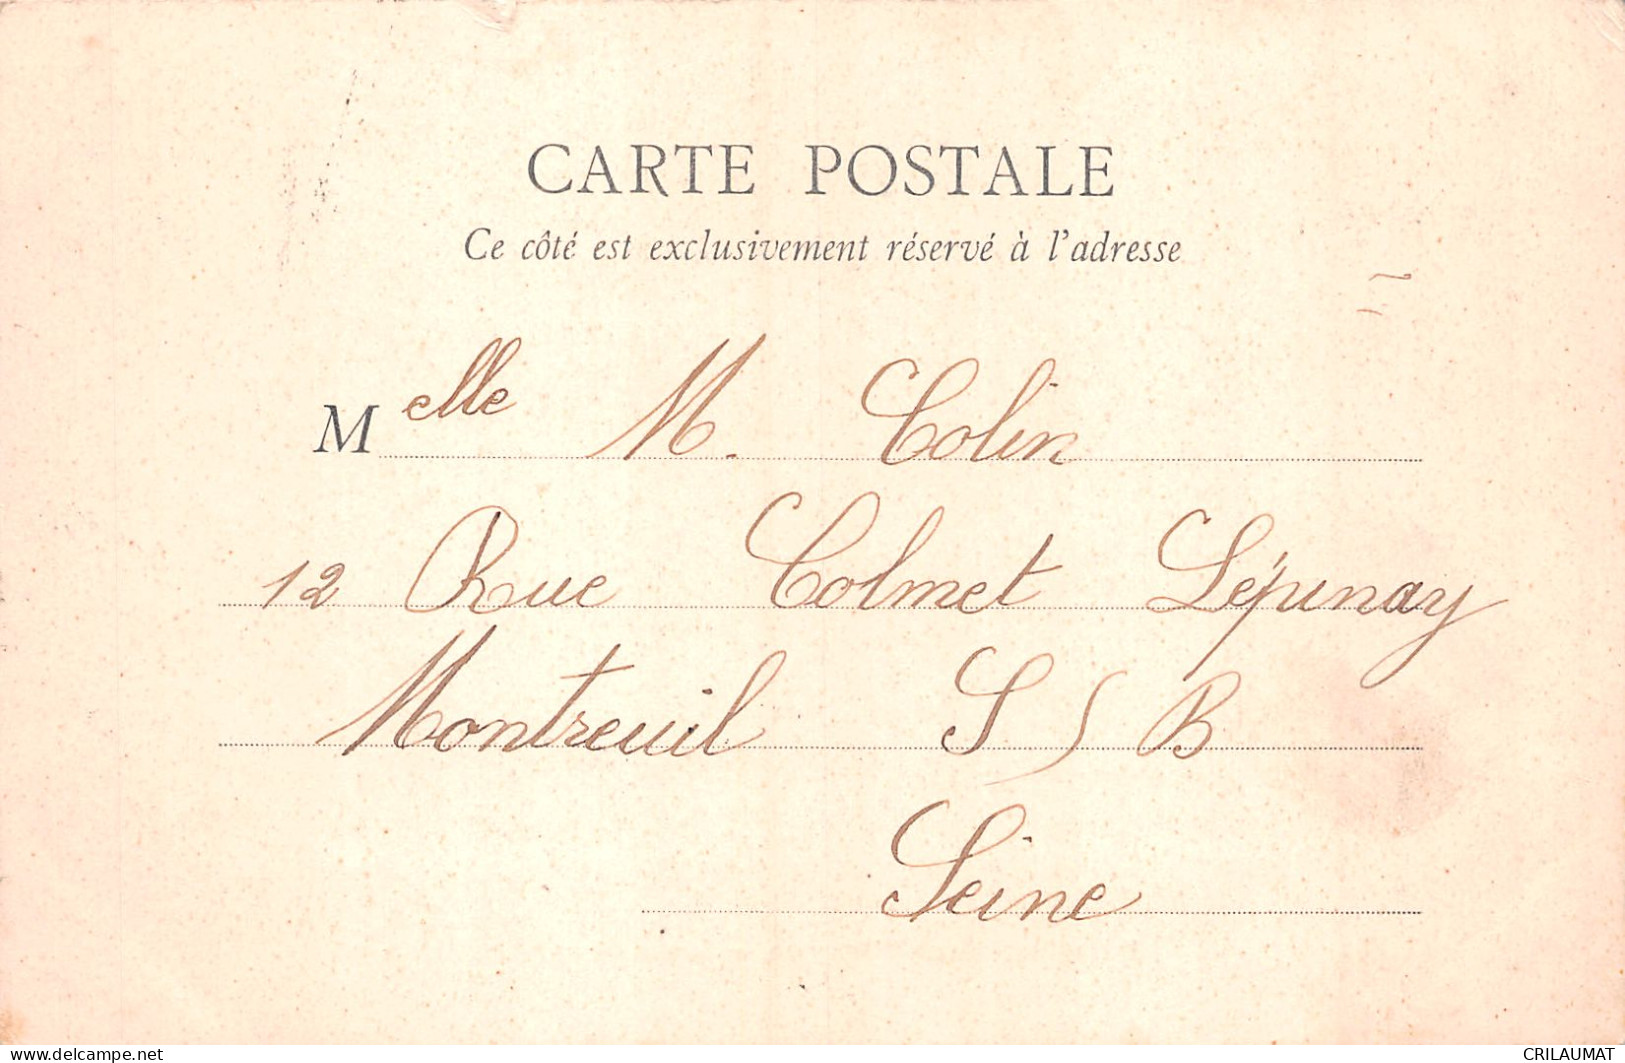 CARTE POSTALE
Ce côté est exclusivement réservé à l'adresse
Melle M. Colin
12 Rue Colmet Lépinay
Montreuil S/B
Seine
www.delcampe.net
CRILAUMAT